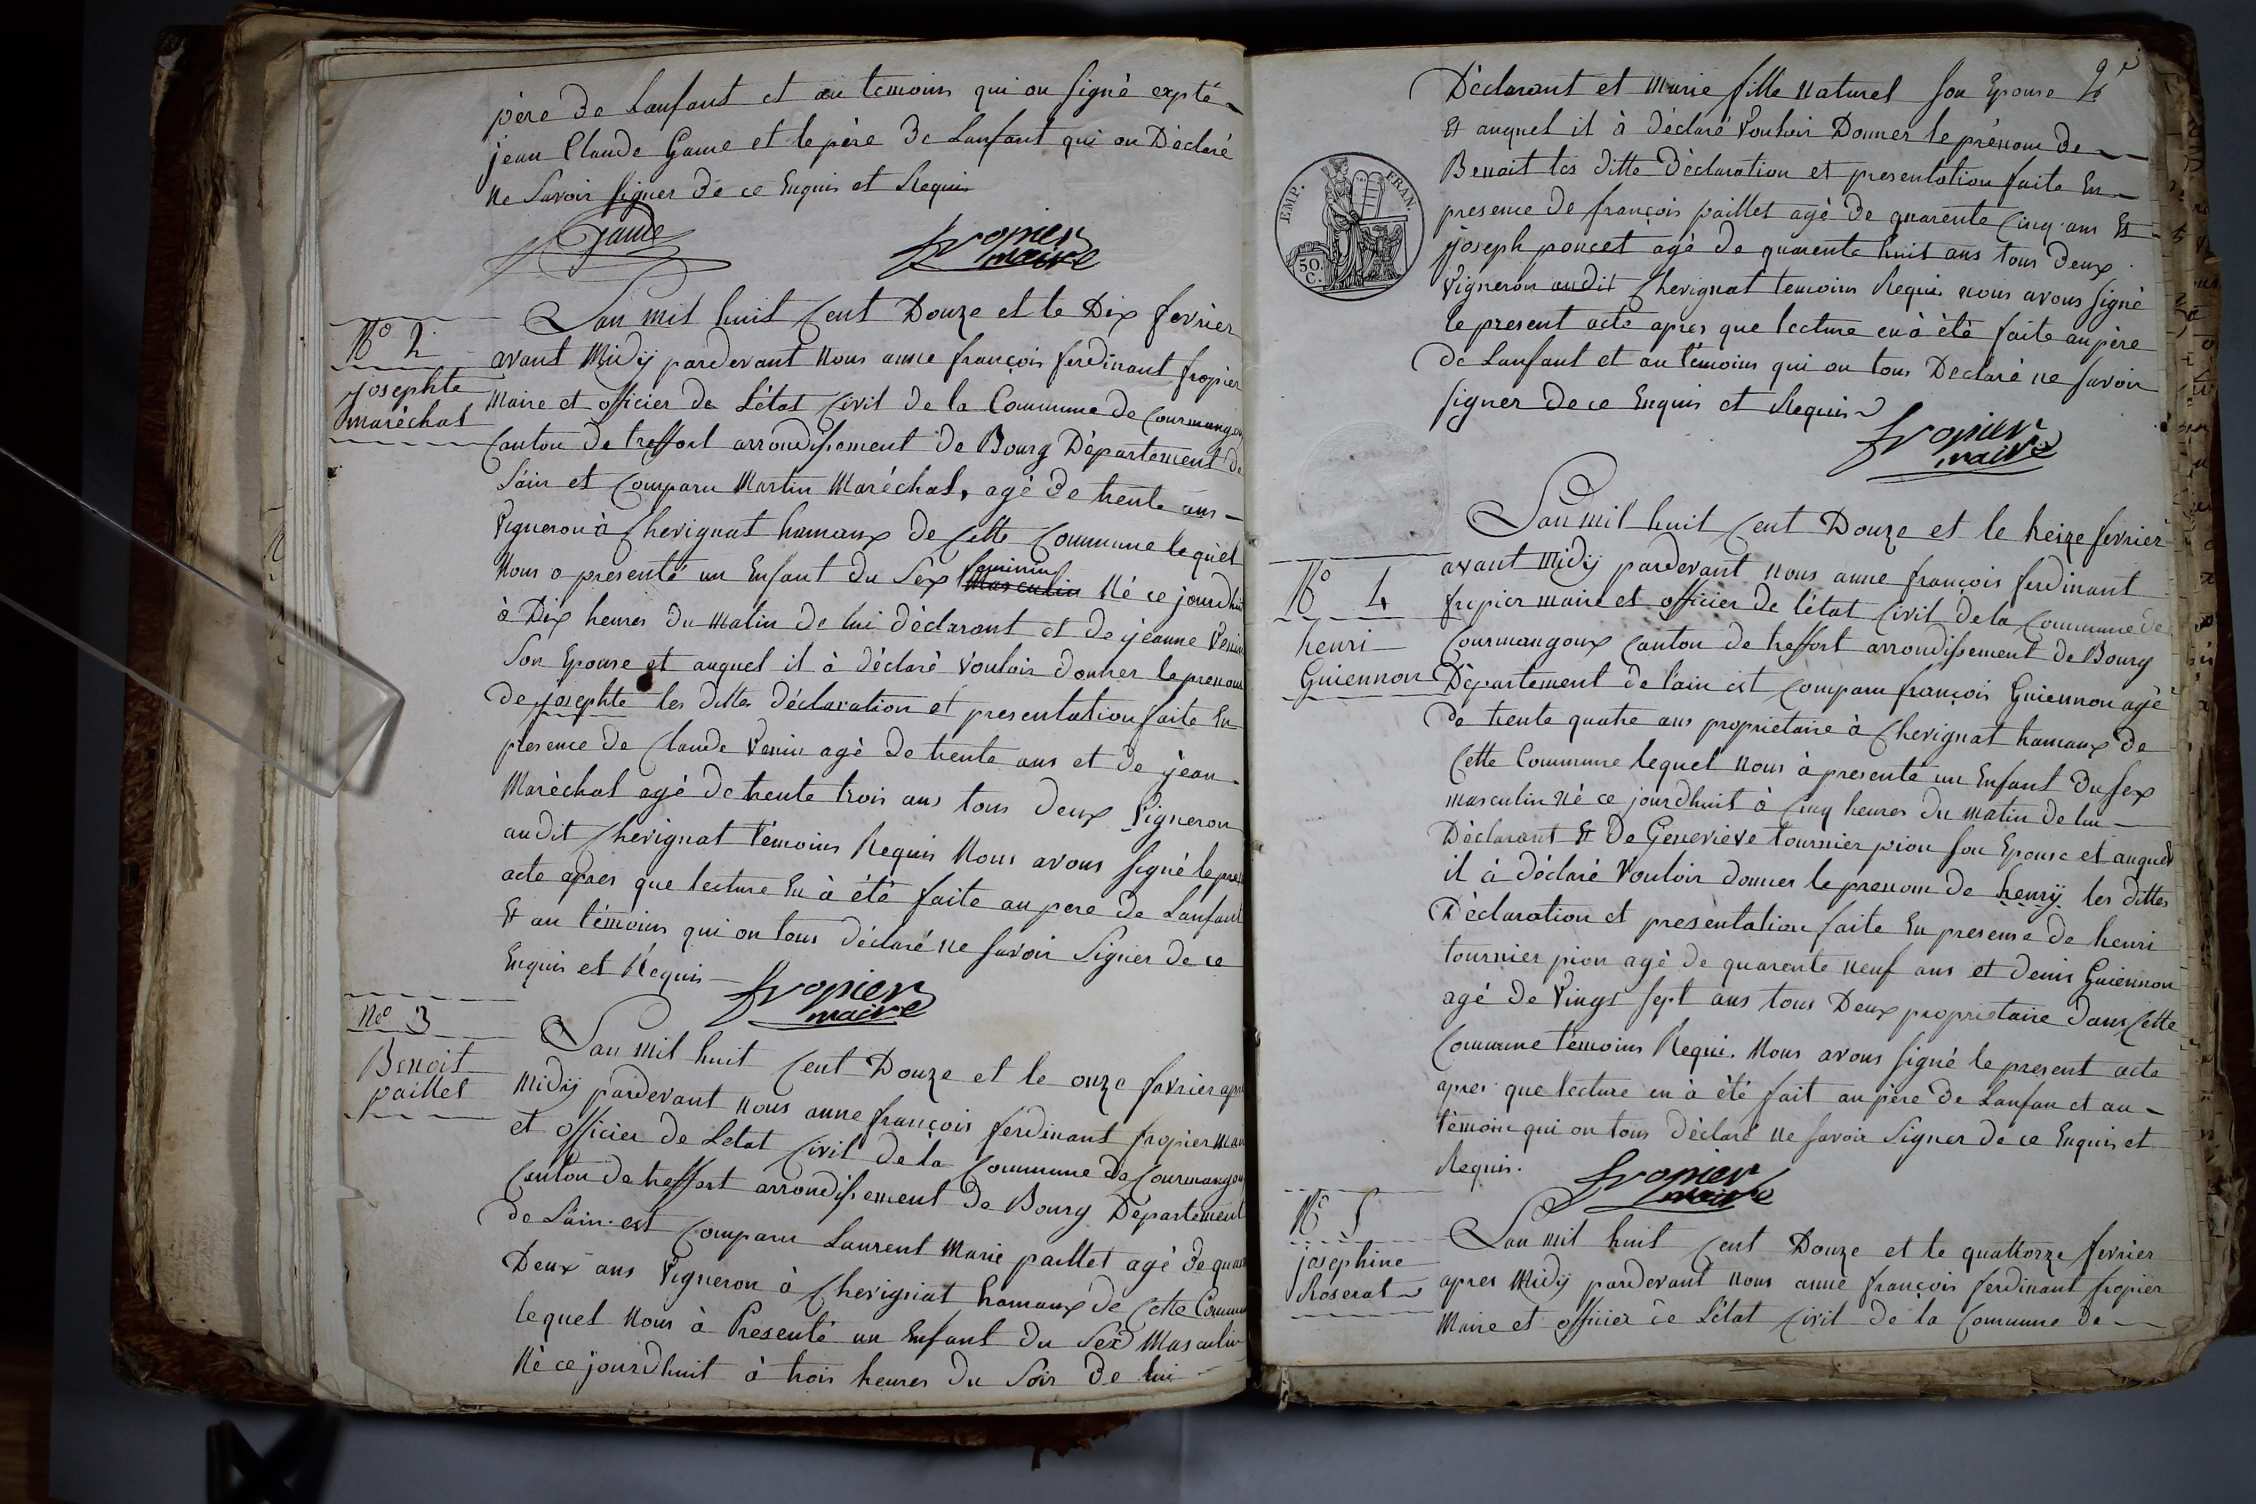 père de Lanfant et au temoins qui on signé expté
jean Claude Game et le père de Lanfant qui on Déclaré
Ne Savoir signer de ce Enquis et Requis
Game
fropier
maire
N° 2
Josephte
maréchal
Lan mil huit Cent Douze et le Dix fevrier
avant Midÿ pardevant Nous anne françois ferdinant fropier
Maire et officier de Létat Civil de la Commune de Courmangou
Canton de treffort arrondissement de Bourg Département de
Lain et Comparu Martin Maréchal, agé de trente ans
Vigneron à Chevignat hamaux de Cette Commune lequel
Nous a presenté un Enfant du Sex feminin Masculin Né ce jourdhui
à Dix heures du matin de lui déclarant et de jeanne Venin
Son Epouse et auquel il à déclaré vouloir donner le prenom
de josephte les dittes déclaration et presentation faite En
presence de Claude Venin agé de trente ans et de jean
Maréchal agé de trente trois ans tous deux Vigneron
audit Chevignat témoins Requis Nous avons signé le prest
acte apres que lecture En à été faite au pere de Lanfant
Et au témoins qui on tous déclaré ne savoir Signer de ce
Enquis et Requis
fropier
maire
N° 3
Benoit
paillet
Lan mil huit Cent Douze et le onze favrier apre
Midÿ pardevant nous anne françois ferdinant fropier mair
et officier de Letat Civil de la Commune de Courmangou
Canton de treffort arrondissement de Bourg Département
de Lain est Comparu Laurent Marie paillet agé de quara
Deux ans Vigneron à Chevigniat hamaux de Cette Commu
lequel Nous à Presenté un Enfant du Sex Masculin
Né ce jourdhuit à trois heures du Soir de lui
2e
Déclarant et Marie fille Naturel son Epouse
Et auquel il à déclaré Vouloir Donner le prénom de
Benoit les ditte Déclaration et presentation faite En
presence de françois paillet agé de quarente Cinq ans Et
joseph poncet agé de quarente huit ans tous deux
Vigneron audit Chevignat temoins Requi nous avons signé
le present acte apres que lecture en à été faite au père
de Lanfant et au témoins qui on tous Declaré ne savoir
signer de ce Enquis et Requis
fropier
maire
EMP. FRAN.
50.
C.
N° 4
henri
Guiennon
Lan mil huit Cent Douze et le treize fevrier
avant Midÿ pardevant nous anne françois ferdinant
fropier maire et officier de létat Civil de la Commune de
Courmangoux Canton de treffort arrondissement de Bourg
Département de lain est Comparu françois Guiennon agé
de trente quatre ans proprietaire à Chevignat hamaux de
Cette Commune lequel Nous à presenté un Enfant du sex
masculin Né ce jourdhuit à Cinq heures du matin de lui
Déclarant Et de Genevieve tournier pion son Epouse et auquel
il à déclaré Vouloir donner le prenom de henrÿ les dittes
Déclaration et presentation faite En presense de henri
tournier pion agé de quarente neuf ans et denis Guiennon
agé de Vingt sept ans tous Deux proprietaire dans Cette
Commune témoins Requi. Nous avons signé le present acte
apres que lecture en à été fait au père de Lanfan et au
témoin qui on tous déclaré ne savoir Signer de ce Enquis et
Requis.
fropier
maire
N° 5
josephine
Roserat
Lan mil huit Cent Douze et le quattorze fevrier
apres Midÿ pardevant nous anne françois ferdinant fropier
Maire et officier de Létat Civil de la Commune de